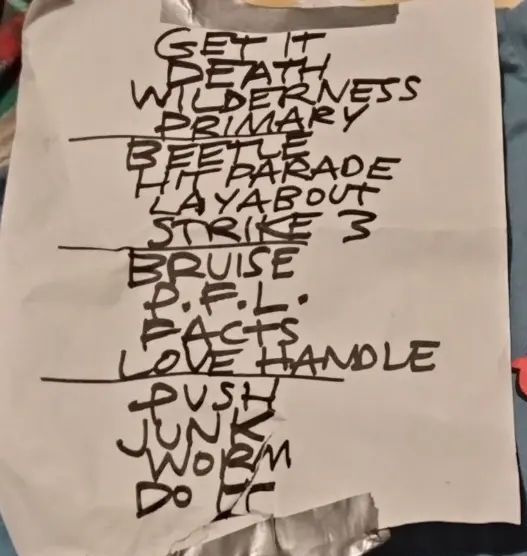 GET IT
DEATH
WILDERNESS
PRIMARY
BEETLE
HIT PARADE
LAYABOUT
STRIKE 3
BRUISE
P.F.L.
FACTS
LOVE HANDLE
PUSH
JUNK
WORM
DO IT